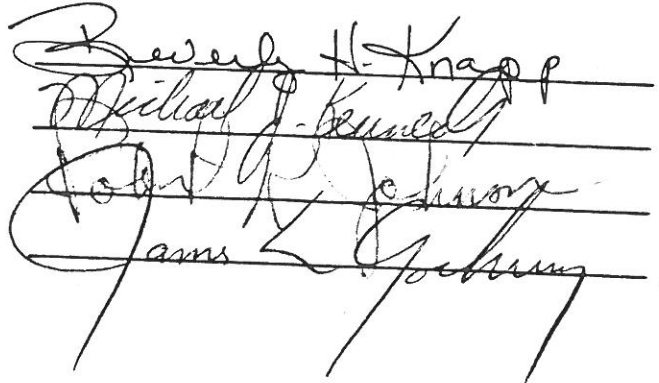 Beverly H. Knapp
Michael J. Kennedy
Robert R. Johnson
James L.